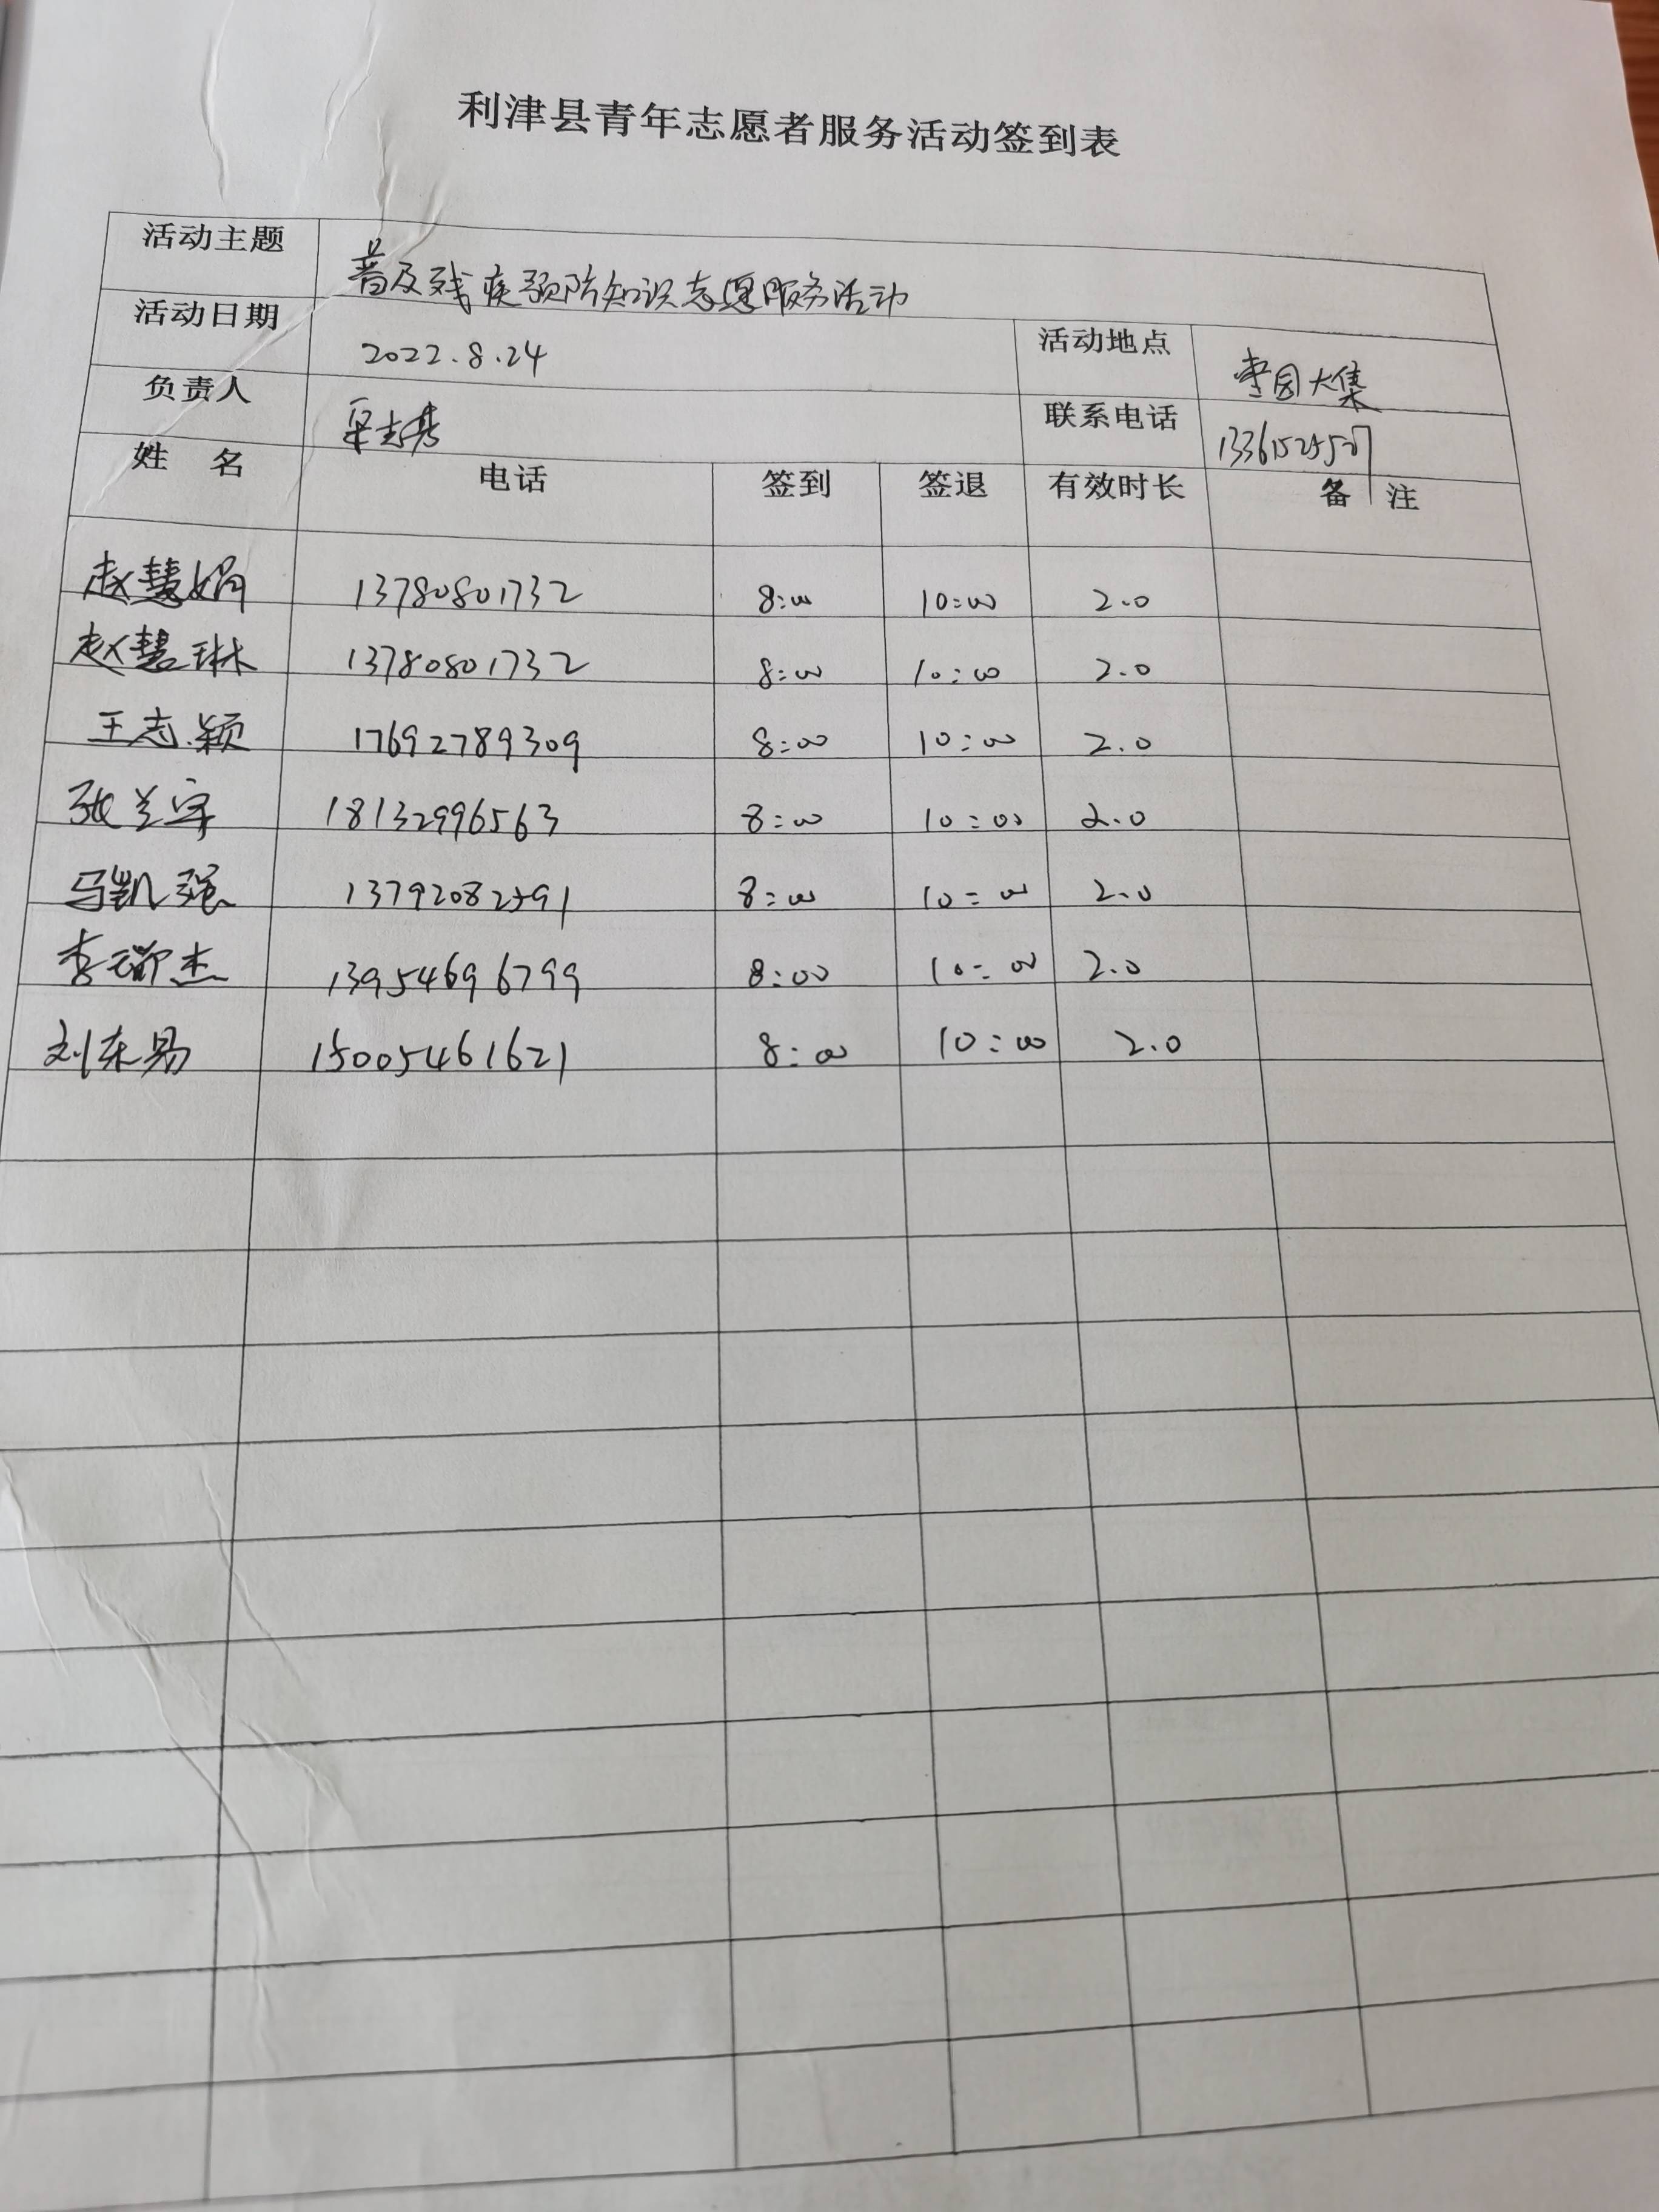 利津县青年志愿者服务活动签到表
活动主题 普及残疾预防知识志愿服务活动
活动日期 2022.8.24 活动地点 大集
负责人 联系电话
姓 名 电话 签到 签退 有效时长 备 注
赵慧娟 13780801732 8:00 10:00 2.0
赵慧琳 13780801732 8:00 10:00 2.0
王志颖 17692789309 8:00 10:00 2.0
张兰宇 18132996563 8:00 10:00 2.0
马凯强 13792082591 8:00 10:00 2.0
李瑞杰 13954696799 8:00 10:00 2.0
刘东易 15005461621 8:00 10:00 2.0